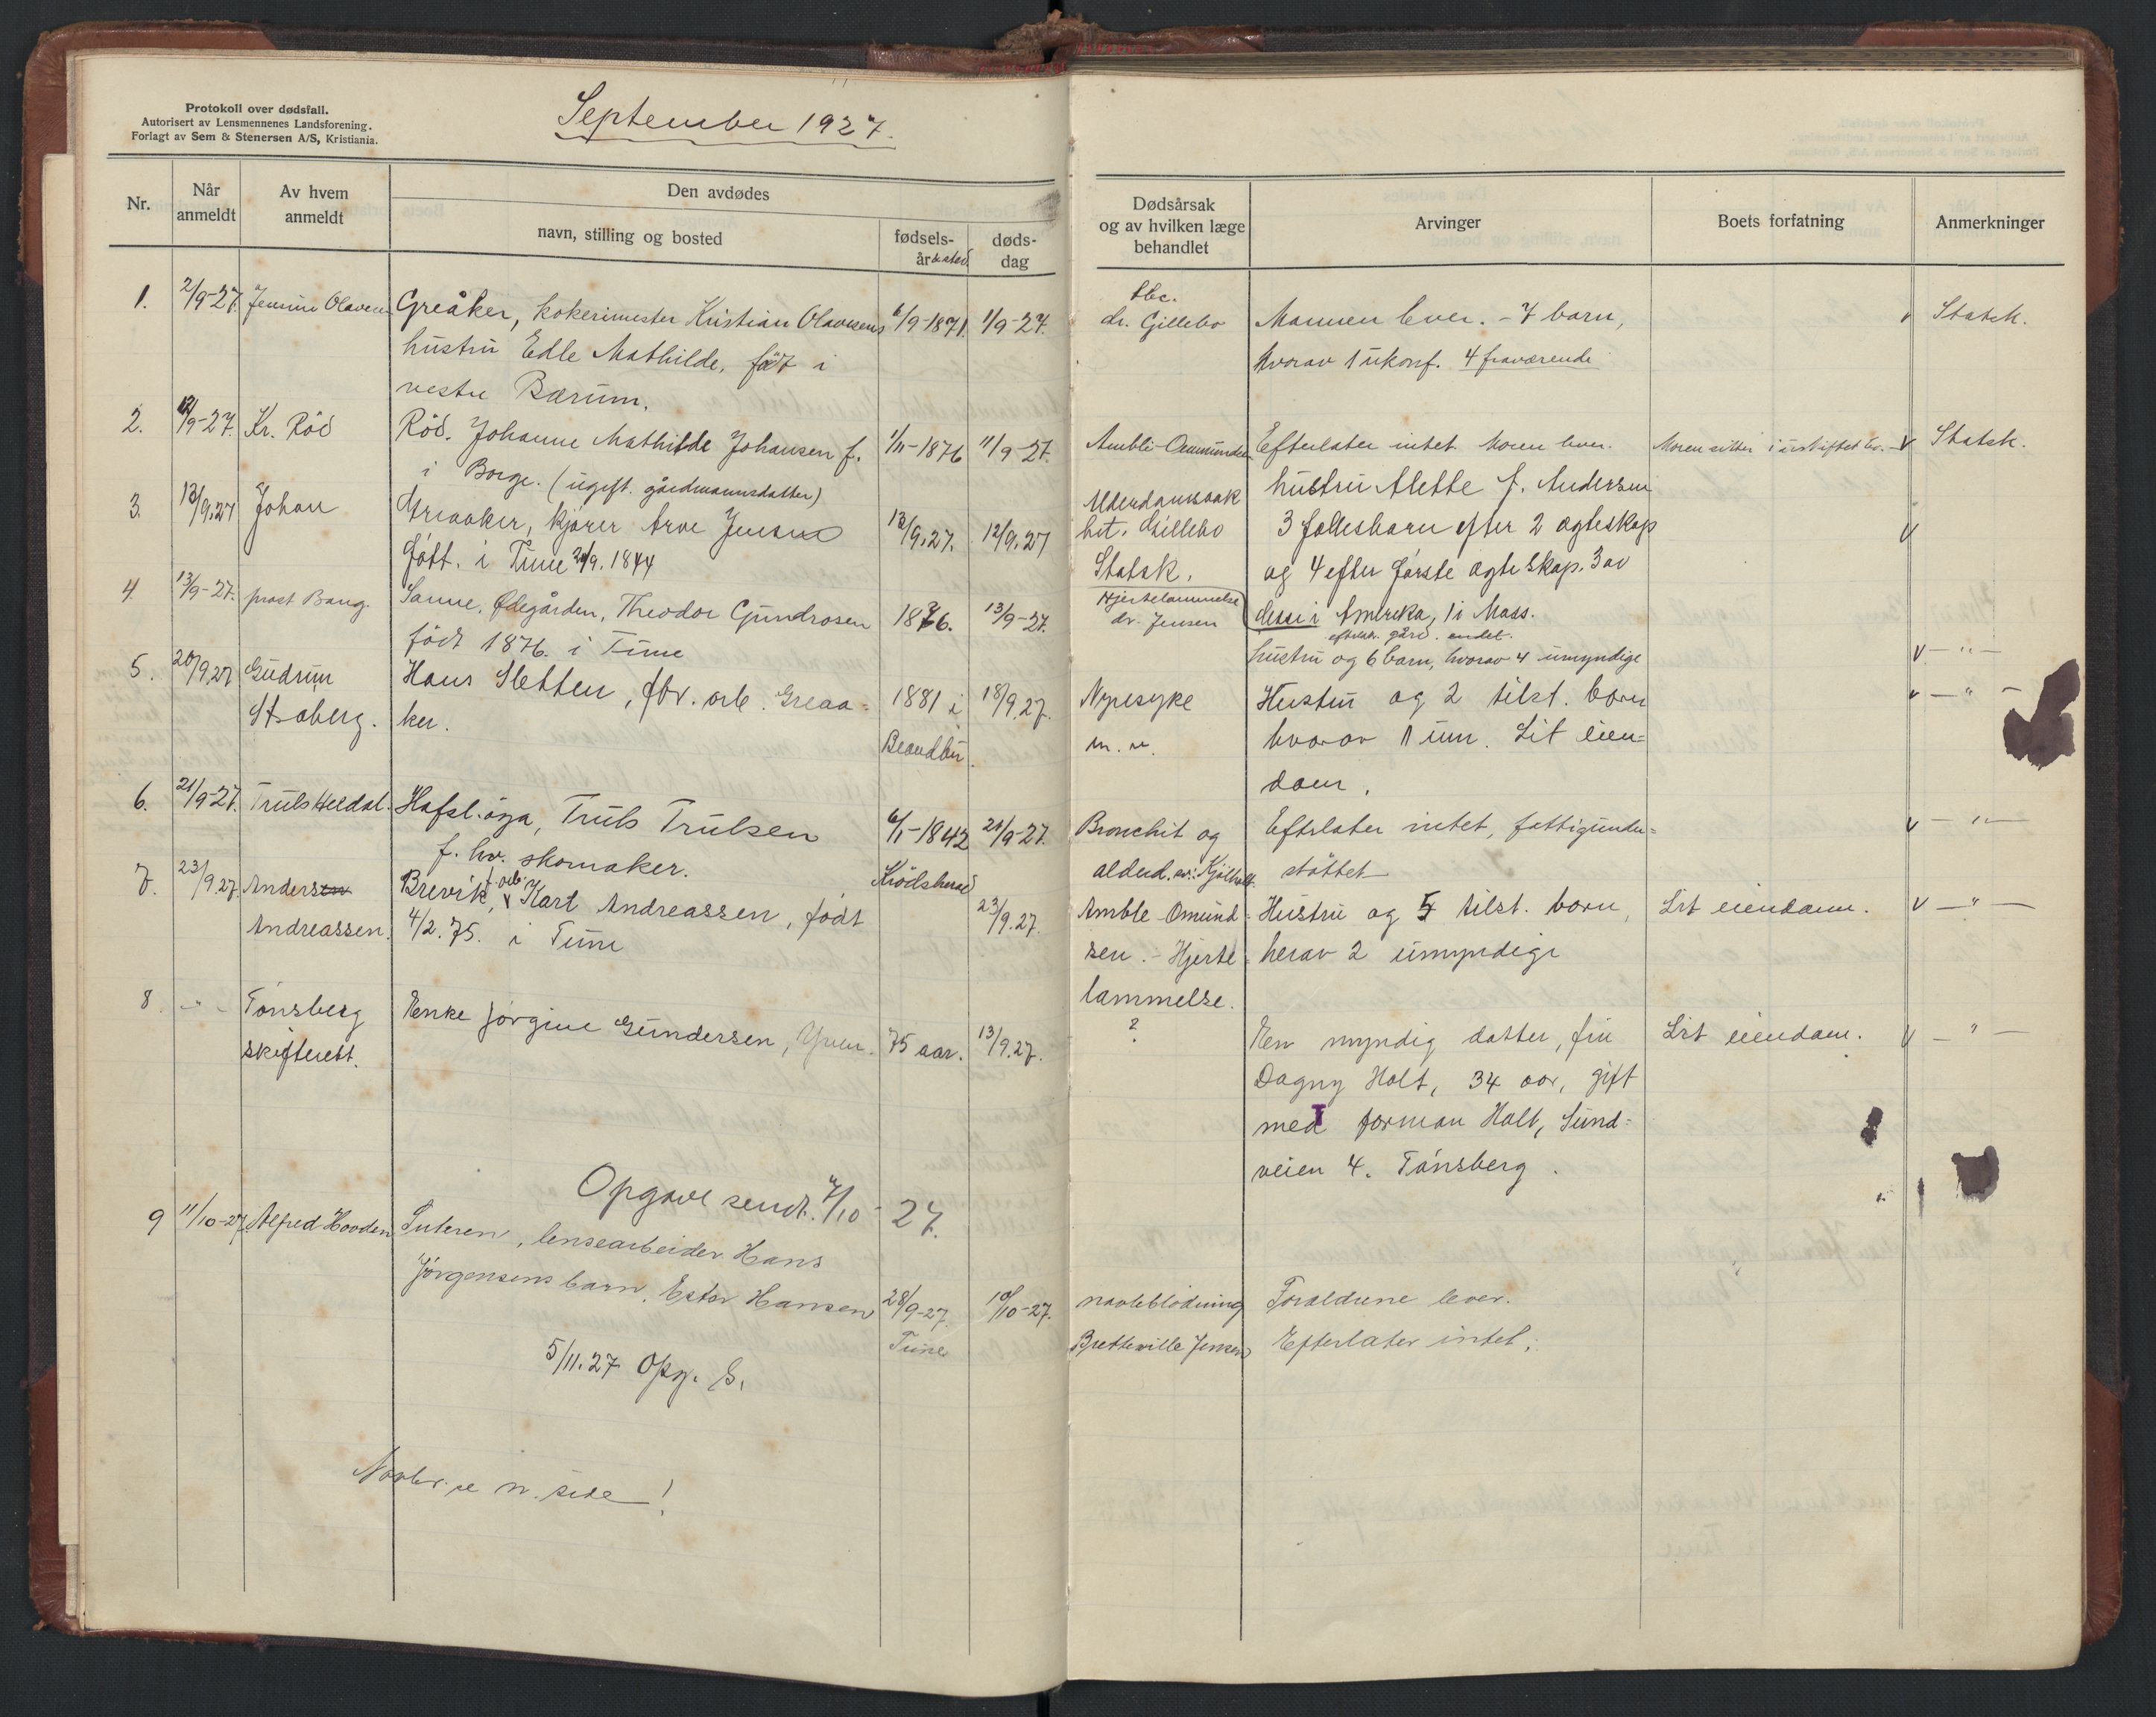 Protokoll over dødsfall.
Autorisert av Lensmennenes Landsforening.
Forlagt av Sem & Stenersen A/S, Kristiania.
September 1927.
Nr.
Når anmeldt
Av hvem anmeldt
Den avdødes
navn, stilling og bosted
fødsels- år & sted
døds- dag
Dødsårsak og av hvilken læge behandlet
Arvinger
Boets forfatning
Anmerkninger
1. 2/9-27. Olavesen Greåker, kokerimester Kristian Olavesens 6/9-1871. 1/9-27. tbc. dr. Gillebo Mannen lever. - 7 barn, v Statsk.
hustru Edle Mathilde, født i hvorav 1 ukonf. 4 fraværende
vestre Bærum.
2. 12/9-27. Kr. Röd Röd. Johanne Mathilde Johansen f. 1/11-1876 11/9-27. Efterlater intet. Moren lever. Moren sitter i uskiftet bo. v Statsk.
i Borge. (ugift. gårdmannsdatter)
3. 13/9.27 Johan Greaaker, kjører Arve Jensen 13/9.27. 12/9.27 hustru Alette f. Andersen
født. i Tune 21/9. 1844 beh. Gillebo 3 fællesbarn efter 2 ægteskap v
Statsk. og 4 efter første ægteskap. 3 av
desse i Amerika, 1 i Moss.
4 13/9-27. prost Bang. Sanne, Ødegården, Theodor Gundrosen 1876. 13/9-27. Hjertelammelse dr. Jensen
efterlater gård. andel.
født 1876. i Tune hustru og 6 barn, hvorav 4 umyndige v - " -
5. 20/9.27 Gudrun Hans Sletten, fbv. arb. Greaa- 1881 i 18/9.27. Nyresyke Hustru og 2 tilst. børn v - " -
Straberg. ker. m. v. hvorav 1 um. Lit eien-
dom.
6. 21/9-27. Truls Heldal. Hafsl.øya, Truls Trulsen 6/1-1842 21/9-27. Bronchit og Efterlater intet, fattigunder- v - " -
f. hv. skomaker. Krödsherad alderd. støttet
7. 23/9.27. Andersen Brevik, arb. Karl Andreassen, født 23/9.27. Amble-Omund- Hustru og 5 tilst. born, Lit eiendom. v - " -
Andreassen. 4/2.75. i Tune sen. - Hjerte- herav 2 umyndige
lammelse.
8. - " - Tönsberg Enke Jørgine Gundersen, 75 aar. 13/9.27. ? En myndig datter, fru Lit eiendom. v - " -
skifterett. Dagny Holt, 34 aar, gift
med forman Holt, Sund-
veien 4. Tönsberg.
Opgave sendt. 7/10-27.
9 11/10-27. Alfred Hooden lensearbeider Hans
Jörgensens barn, Ester Hansen 28/9-27. 10/10-27. navleblødning Forældrene lever.
Tune Bretteville Jensen Efterlater intet.
5/11.27 Opg. S.
Novbr. se n. side!